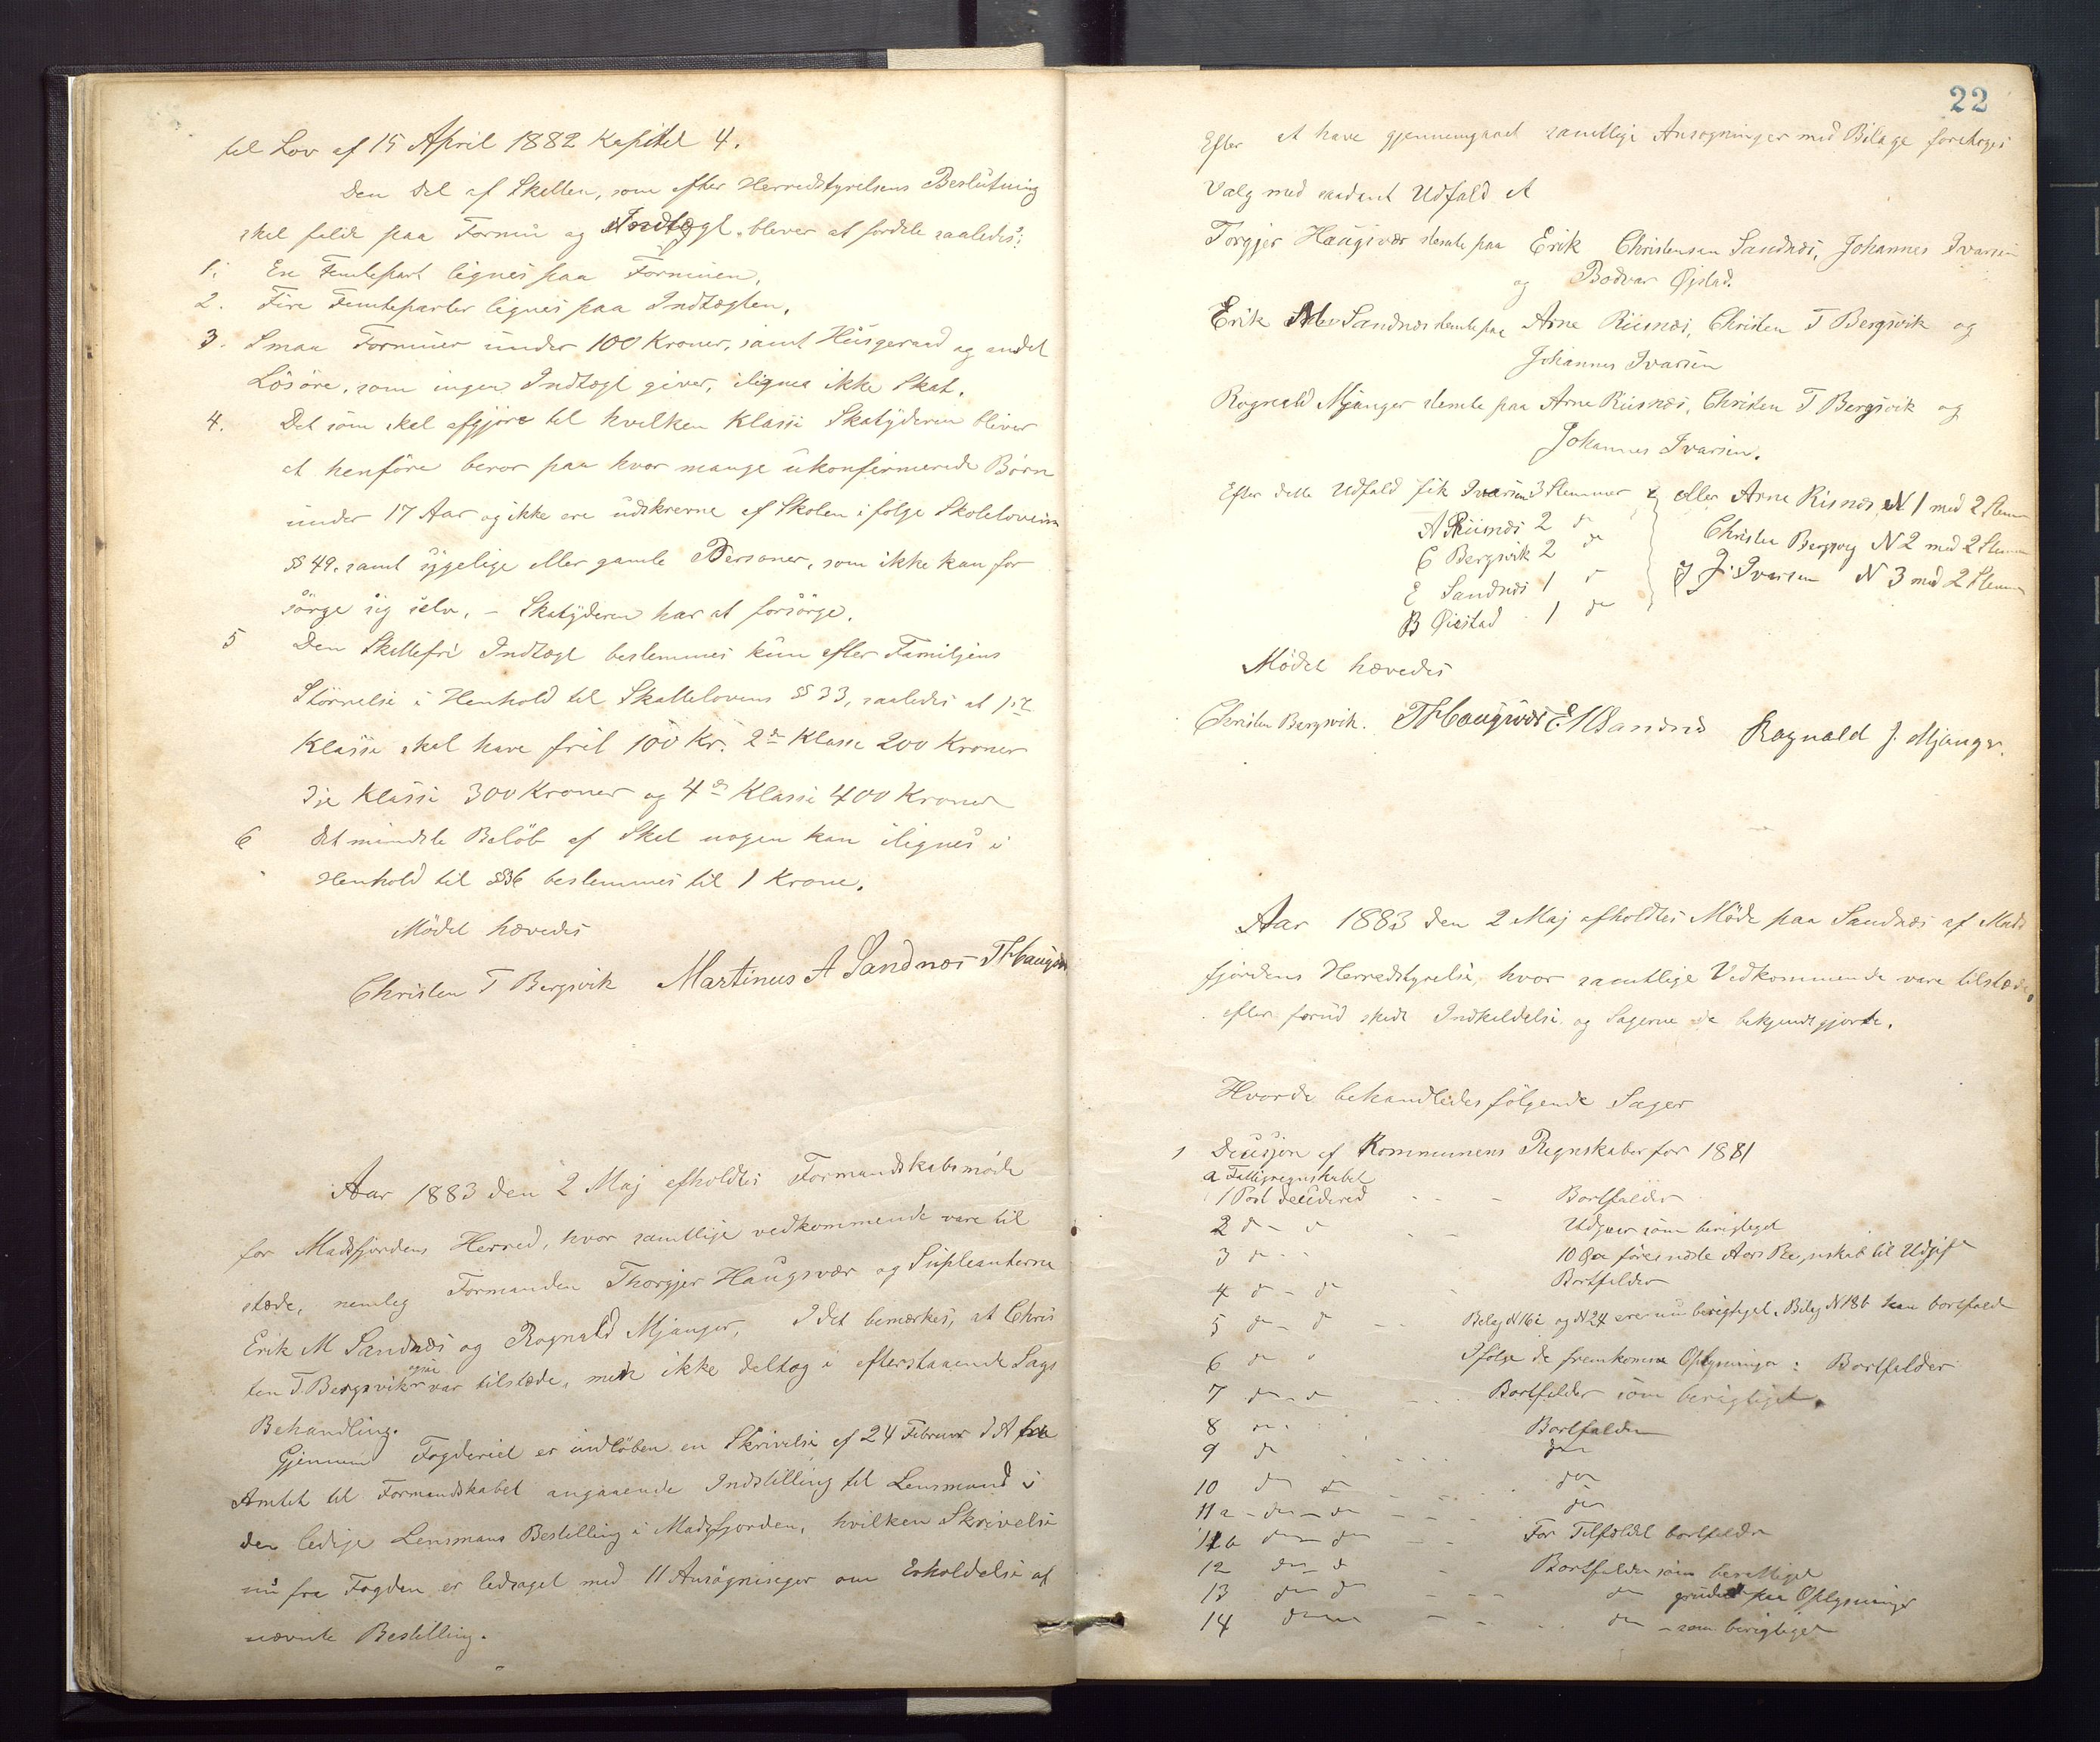 til Lov af 15 April 1882 Kapitel 4.
Den Del af Skatten, som efter Herredstyrelsens Beslutning
skal falde paa Formue og Indtægt, bliver at fordele saaledes:
1. En Femtepart lignes paa Formuen.
2. Fire Femteparter lignes paa Indtægten.
3. Smaa Formuer under 100 Kroner, samt Husgeraad og andet
Lösöre, som ingen Indtægt giver, ilignes ikke Skat.
4. Det som skal afgjöre til hvilken Klasse Skatyderen bliver
at henföre beror paa hvor mange ukonfirmerede Börn
under 17 Aar og ikke ere udskrevne af Skolen i fölge Skoleloven
§ 49, samt sygelige eller gamle Personer, som ikke kan for
sörge sig selv, - Skatyderen har at forsörge.
5 Den Skattefri Indtægt bestemmes kun efter Familjens
Störrelse i Henhold til Skattelovens § 33, saaledes at 1ste
Klasse skal have frit 100 Kr. 2de Klasse 200 Kroner
3je Klasse 300 Kroner og 4de Klasse 400 Kroner
6 Det mindste Belöb af Skat nogen kan ilignes i
Henhold til § 36 bestemmes til 1 Krone.
Mödet hævedes
Christen T Bergsvik Martinus A Sandnæs THaugsvær
Aar 1883 den 2 Maj afholdtes Formandskabsmöde
for Madsfjordens Herred, hvor samtlige vedkommende vare til
stæde, nemlig Formanden Thorgjer Haugsvær og Supleanterne
Erik M Sandnæs og Rognald Mjanger, I det bemærkes, at Chris
ten T. Bergsvik ogsaa var tilstæde, men ikke deltog i efterstaaende Sags
Behandling.
Gjennem Fogderiet er indlöben en Skrivelse af 24 Februar d A fra
Amtet til Formandskabet angaaende Indstilling til Lensmand i
den ledige Lensmans Bestilling i Madsfjorden, hvilken Skrivelse
nu fra Fogden er ledsaget med 11 Ansögninger om Erholdelse af
nævnte Bestilling.
22
Efter at have gjennemgaaet samtlige Ansøgninger med Bilage foretoges
Valg med saadant Udfald at
Torgjer Haugsvær stemte paa Erik Christensen Sandnæs, Johannes Ivarsen
og Bodvar Øistad.
Erik M Sandnæs stemte paa Arne Riisnæs, Christen T Bergsvik og
Johannes Ivarsen
Rognald Mjanger stemte paa Arne Riisnæs, Christen T Bergsvik og
Johannes Ivarsen.
Efter dette Udfald fik Ivarsen 3 Stemmer eller Arne Risnæs N 1 med 2 Stem
A Riisnæs 2 do Christen Bergsvig N 2 med 2 Stem
C Bergsvik 2 do J. Ivarsen N 3 med 2 Stem
E Sandnæs 1 do
B Øistad 1 do
Mödet hævedes
Christen Bergsvik. THaugsvær EMSandnæs Rognald J. Mjanger.
Aar 1883 den 2 Maj afholdtes Möde paa Sandnæs af Mads
fjordens Herredstyrelse, hvor samtlige Vedkommende vare tilstæde,
efter forud skede Indkaldelse og Sagerne da bekjendtgjorte.
Hvorda behandledes fölgende Sager
1 Desisjon af Kommunens Regnskaber for 1881
a Fattigregnskabet
1 Post desideres - - - Bortfalder
2 do - do - - Udgaar som berigtiget
3 do - - 10 Øre föres næste Aars Regnskab til Udgift
4 do - do - Bortfalder
5 do - do - - Bilag N 16 og N 24 ere nu berigtiget. Bilag N 18b kan bortfalde
6 do do Ifölge de fremkomne Oplysninger: Bortfalder
7 do do - - Bortfalder som berigtiget.
8 do - Bortfalder
9 do - - - do
10 do do - - - do
11a - do - do - - - do
11b do do - - For Tilfældet bortfalder
12 do do Bortfalder som berettiget
13 do do - - - do grundet paa Oplysninger
14 do do - - - do - som berigtiget